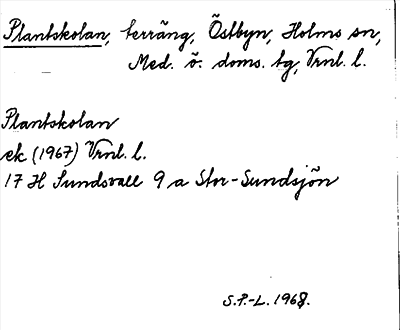 Plantskolan, terräng, Östbyn, Holms sn,
Med. ö. doms. tg, Vrnl. l.
Plantskolan
ek (1967) Vrnl. l.
17 H Sundsvall 9 a Stor-Sundsjön
S.P.-L. 1968.